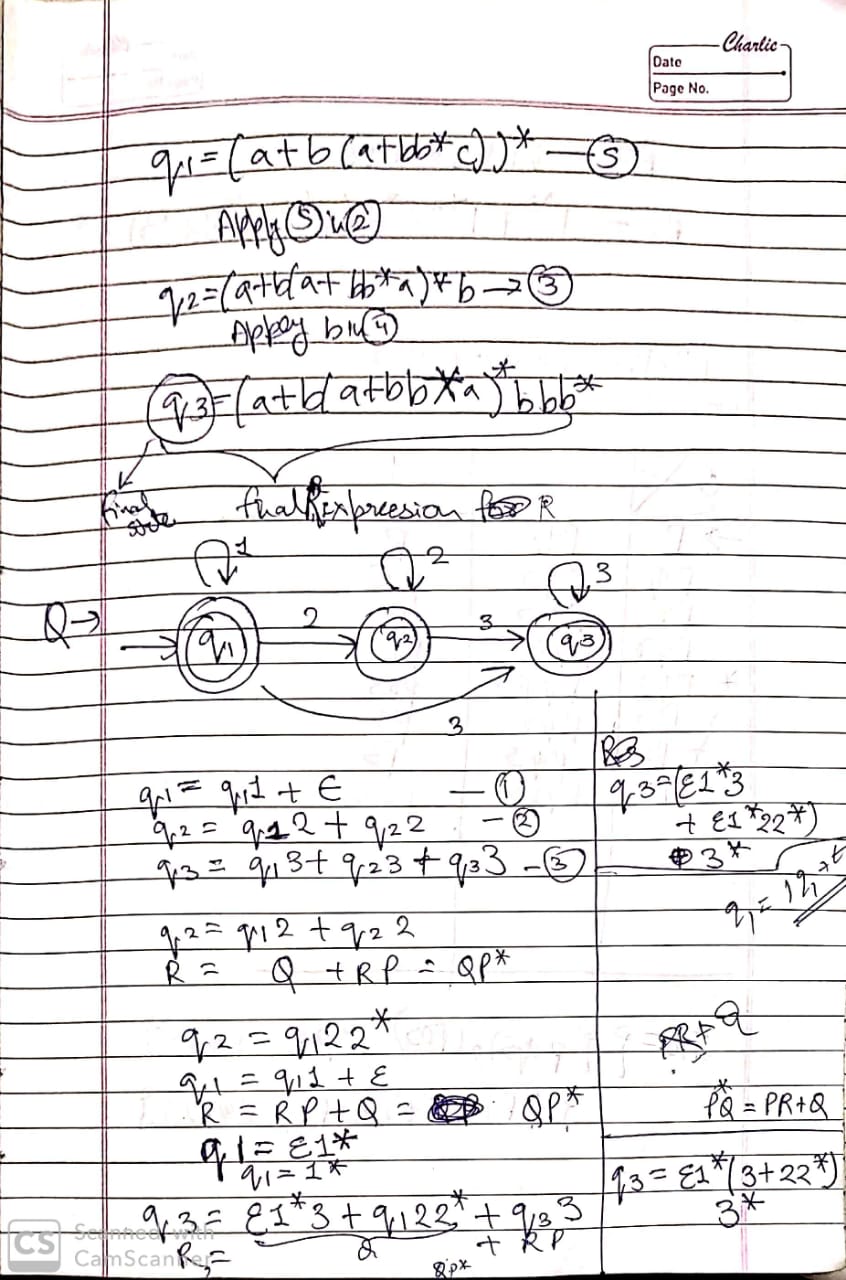 Charlie
Date
Page No.
q1 = (a+b(a+bb*c))* — (5)
Apply (5) in (2)
q2=(a+b(a+bb*a)*b → (3)
Appey b in (4)
q3=(a+b(a+bb*a)*bbb*
final
state
final Rexpreesion for R
1
2
3
Q→
q1
2
q2
3
q3
3
q1 = q11 + ϵ — (1)
q2 = q12 + q22 - (2)
q3 = q13+ q23 + q33 - (3)
q2 = q12 + q22
R = Q + RP = QP*
q2 = q122*
q1 = q11 + ε
R = RP+Q = QP*
q1 = ε1*
q1 = 1*
q3 = ε1*3 + q122* + q33
R = Q + RP
QP*
q3=(ε1*3
+ ε1*22*)
3*
PR+Q
P*Q = PR+Q
q3 = ε1*(3+22*)
3*
CS Scanned with
CamScanner